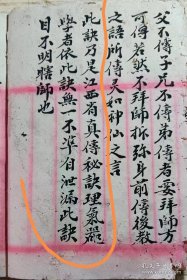 父不傳子兄不傳弟傳者要拜師方
可得若然不拜師折弥身前傳後教
之語所傳天和神仙之言
此訣乃是江西省真傳秘訣理氣羅
學者依此訣無一不準自泄漏此訣
目不明瞎師也